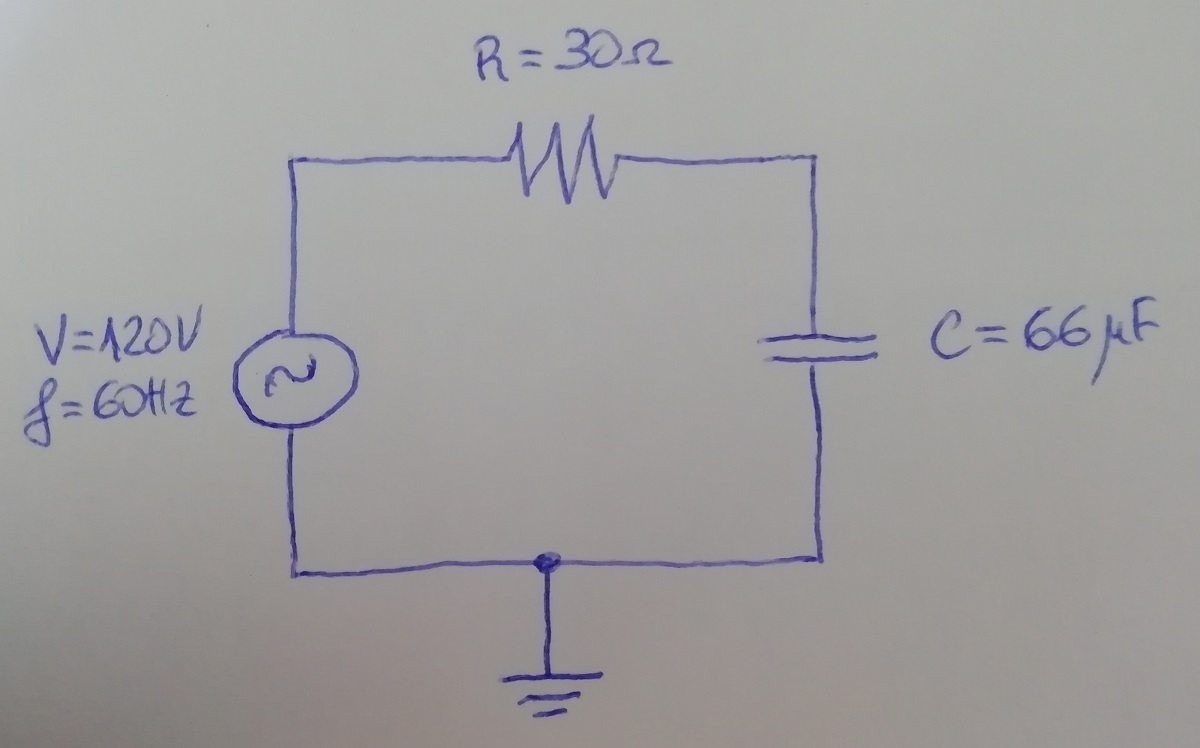 R=30Ω
V=120V
f=60Hz
C=66μF